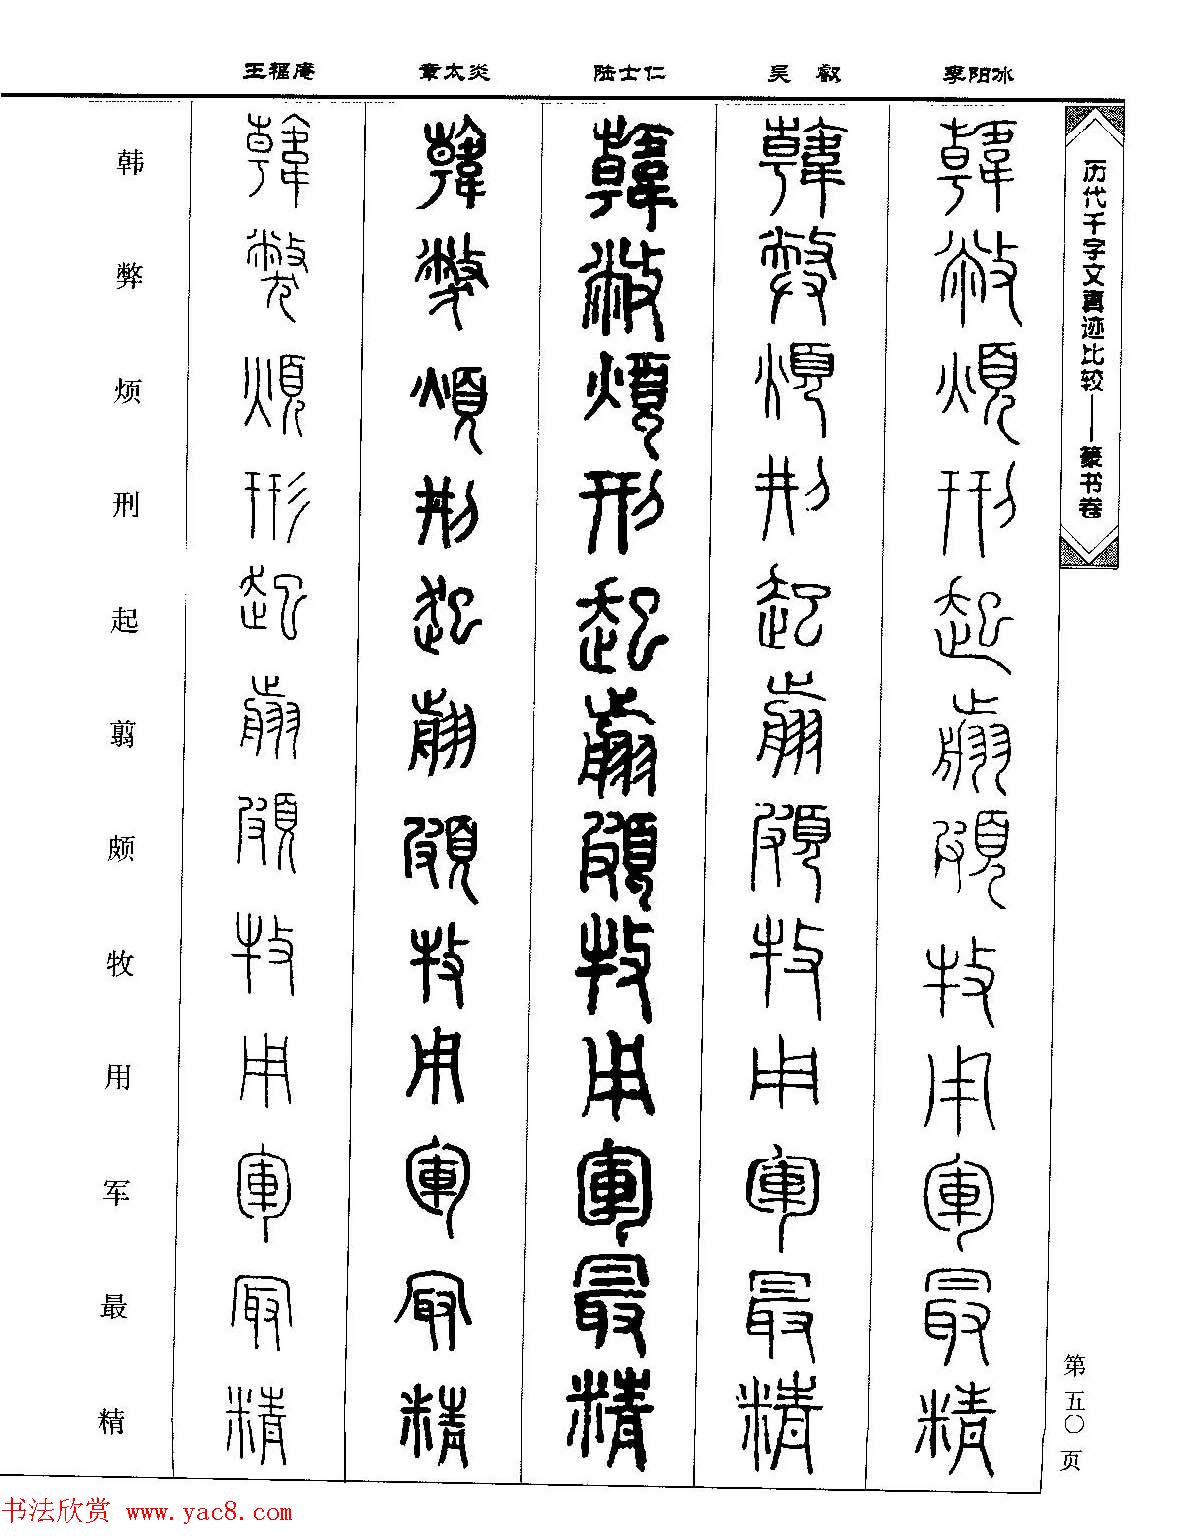 王福庵 章太炎 陆士仁 吴叡 李阳冰
历代千字文真迹比较——篆书卷
韩 韓 韓 韓 韓 韓
弊 弊 弊 弊 弊 弊
烦 煩 煩 煩 煩 煩
刑 刑 刑 刑 刑 刑
起 起 起 起 起 起
翦 翦 翦 翦 翦 翦
颇 頗 頗 頗 頗 頗
牧 牧 牧 牧 牧 牧
用 用 用 用 用 用
军 軍 軍 軍 軍 軍
最 最 最 最 最 最
精 精 精 精 精 精
第五〇页
书法欣赏 www.yac8.com